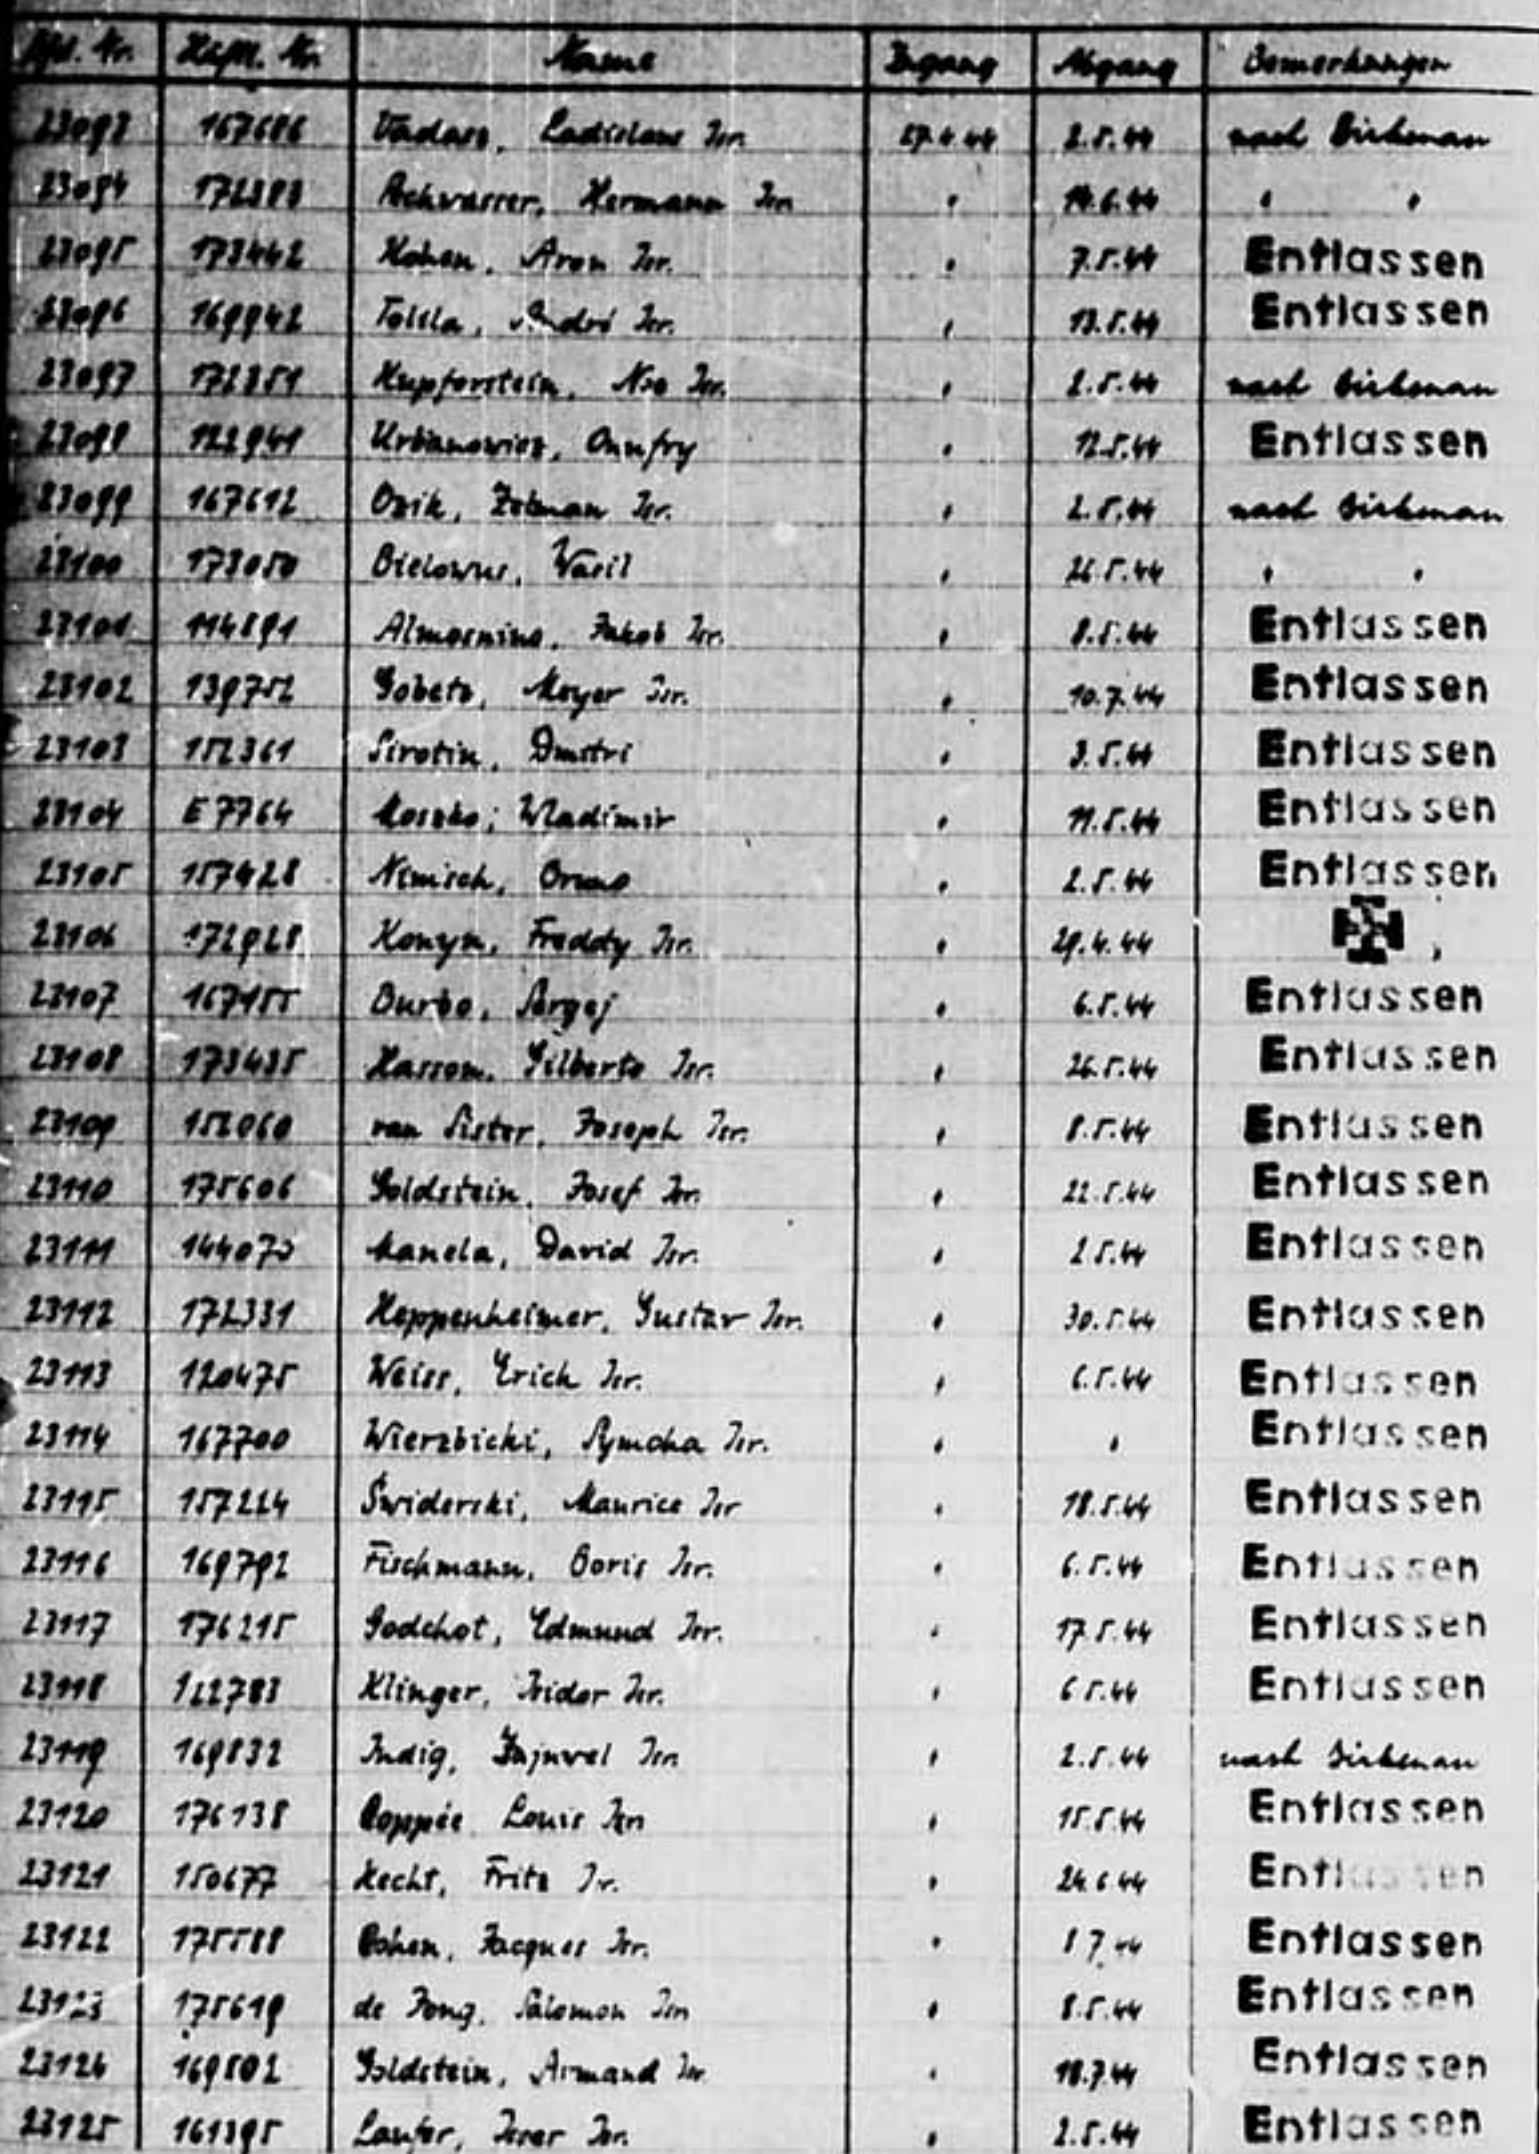 Lfd. Nr. Häftl. Nr. Name Zugang Abgang Bemerkungen
23093 167686 Vadasz, Ladislaus Isr. 27.4.44 2.5.44 nach Birkenau
23094 172383 Hermann Isr. " 14.6.44 " "
23095 173442 Kohen, Aron Isr. " 7.5.44 Entlassen
23096 169942 André Isr. " 13.5.44 Entlassen
23097 172351 Kupferstein, Isr. " 2.5.44 nach Birkenau
23098 122941 Urbanowicz, Onufry " 12.5.44 Entlassen
23099 167612 Ozik, Isr. " 2.5.44 nach Birkenau
23100 173050 Bielowus, Wasil " 26.5.44 " "
23101 114891 Almosnino, Jakob Isr. " 8.5.44 Entlassen
23102 139752 Gobetz, Meyer Isr. " 10.7.44 Entlassen
23103 152361 Sirotin, Dmitri " 3.5.44 Entlassen
23104 E 7764 Moszko; Wladimir " 11.5.44 Entlassen
23105 157428 Nimisch, Bruno " 2.5.44 Entlassen
23106 172928 Konyn, Freddy Isr. " 29.4.44
23107 167155 Burbo, Sergej " 6.5.44 Entlassen
23108 173435 Hassom, Gilberto Isr. " 26.5.44 Entlassen
23109 152060 van Sister, Joseph Isr. " 8.5.44 Entlassen
23110 175606 Goldstein, Josef Isr. " 22.5.44 Entlassen
23111 144073 Manela, David Isr. " 2.5.44 Entlassen
23112 172331 Heppenheimer, Gustav Isr. " 30.5.44 Entlassen
23113 120475 Weiss, Erich Isr. " 6.5.44 Entlassen
23114 167700 Wierzbicki, Symcha Isr. " " Entlassen
23115 157224 Swiderski, Maurice Isr " 18.5.44 Entlassen
23116 169792 Fischmann, Boris Isr. " 6.5.44 Entlassen
23117 176215 Godchot, Edmund Isr. " 17.5.44 Entlassen
23118 122783 Klinger, Isidor Isr. " 6.5.44 Entlassen
23119 169832 Indig, Fajwel Isr. " 2.5.44 nach Birkenau
23120 176138 Coppée Louis Isr. " 15.5.44 Entlassen
23121 150677 Hecht, Fritz Isr. " 24.6.44 Entlassen
23122 175588 Cohen, Jacques Isr. " 8.7.44 Entlassen
23123 175619 de Jong, Salomon Isr. " 8.5.44 Entlassen
23124 169802 Goldstein, Armand Isr. " 18.7.44 Entlassen
23125 161395 Laufer, Isr. " 2.5.44 Entlassen